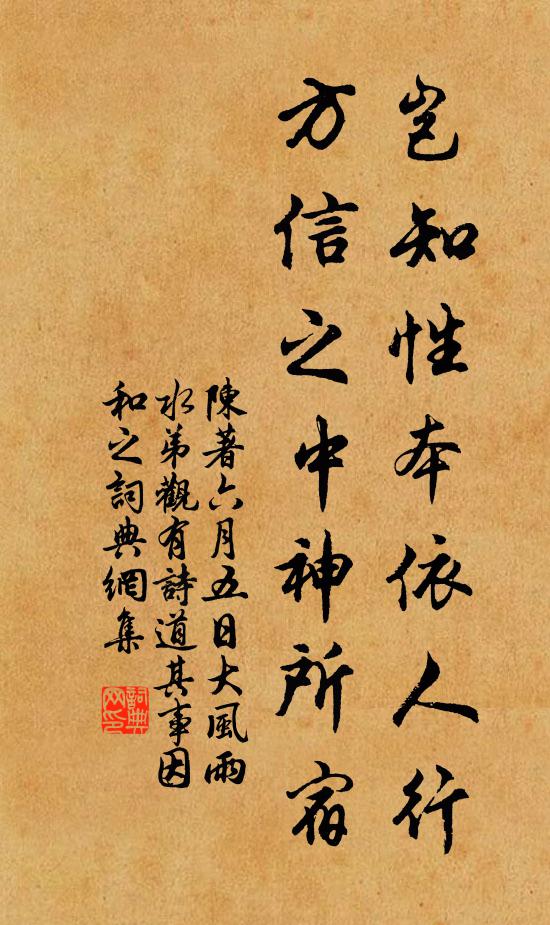 岂知性本依人行
方信之中神所宿
陳著六月五日大風雨
水弟觀有詩道其事因
和之詞典網集
詞典
网印